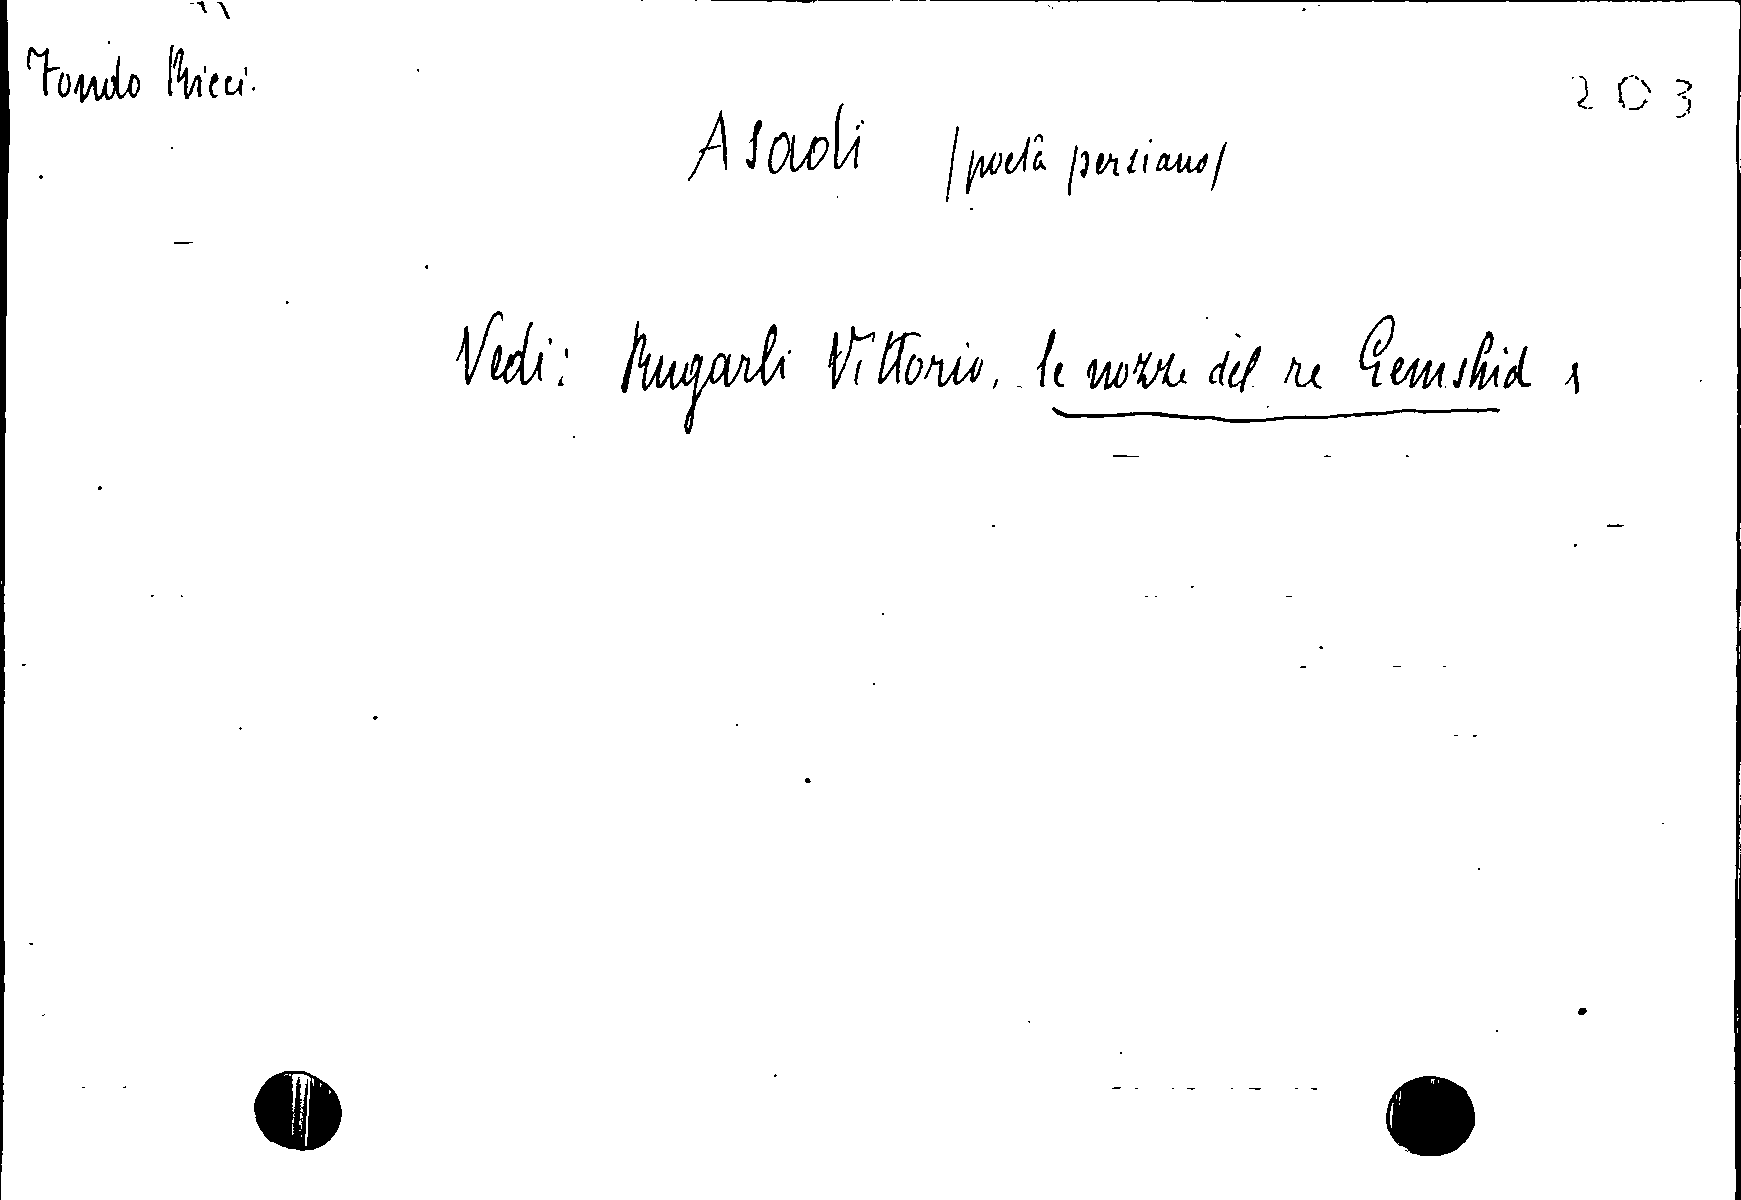 Fondo Ricci.
203
Asadi /poeta persiano/
Vedi: Rugarli Vittorio, le nozze del re Gemshid